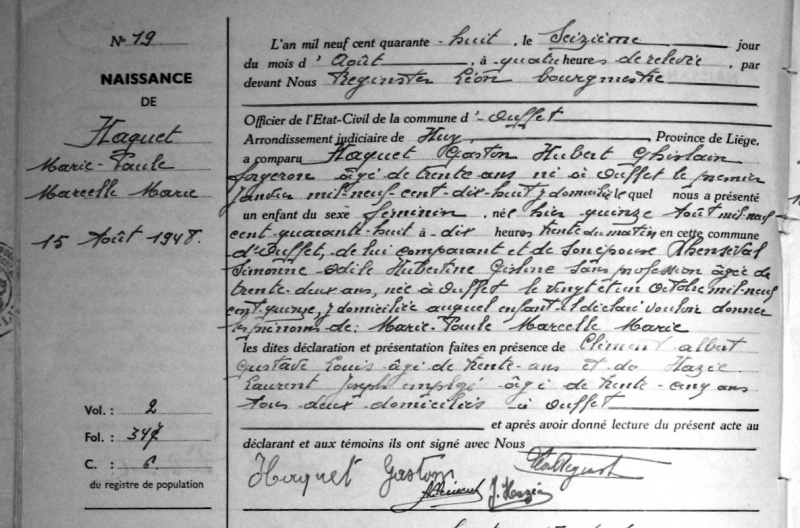 N° 19
NAISSANCE
DE
Haquet
Marie-Paule
Marcelle Marie
15 Août 1948.
Vol. : 2
Fol. : 347
C. : 6
du registre de population
L'an mil neuf cent quarante-huit, le Seizième jour
du mois d'Août, à quatre heures de relevée, par
devant Nous Reginster Léon bourgmestre
Officier de l'Etat-Civil de la commune d'Ouffet
Arrondissement judiciaire de Huy, Province de Liége,
a comparu Haquet Gaston Hubert Ghislain
forgeron âgé de trente ans né à Ouffet le premier
Janvier mil-neuf-cent-dix-huit y domicilié lequel nous a présenté
un enfant du sexe féminin, né hier quinze Août mil-neuf
cent-quarante-huit à dix heures trente du matin en cette commune
d'Ouffet, de lui comparant et de son épouse
Simonne Odile Hubertine Gisline sans profession âgée de
trente-deux ans, née à Ouffet le vingt et un Octobre mil-neuf
cent-quinze, y domiciliée auquel enfant il déclaré vouloir donner
les prénoms de: Marie-Paule Marcelle Marie
les dites déclaration et présentation faites en présence de Clément Albert
Gustave Louis âgé de trente-ans et de Hazée
Laurent Joseph employé âgé de trente-cinq ans
tous deux domiciliés à Ouffet
et après avoir donné lecture du présent acte au
déclarant et aux témoins ils ont signé avec Nous
Haquet Gaston
J. Hazée